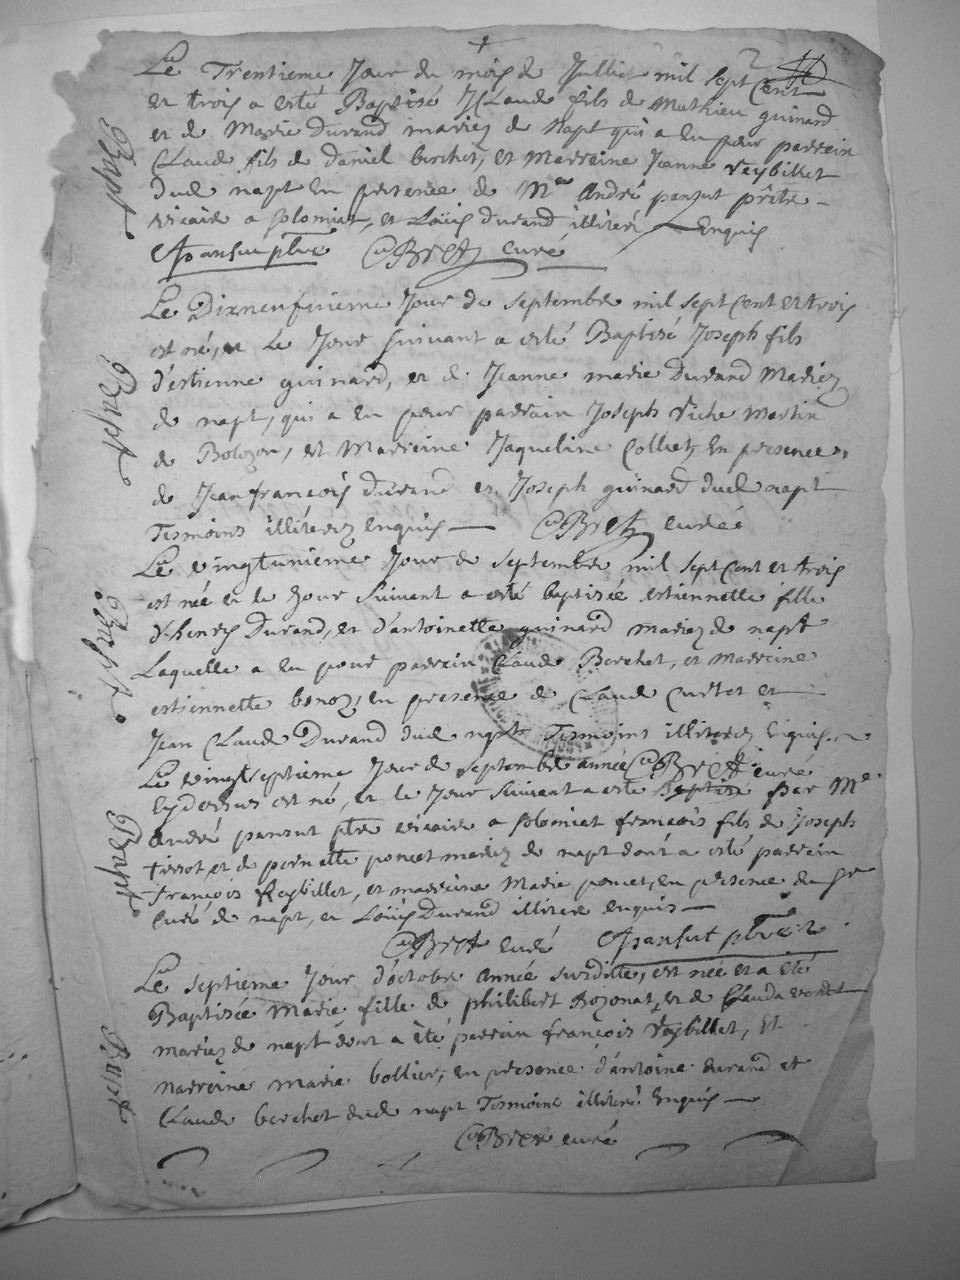 Le Trentieme Jour du mois de Julliet mil sept Cent
et trois a esté Baptisé Claude fils de Mathieu guinard
et de Marie Durand mariez de Napt qui a eu pour parrain
Claude fils de Daniel berchet, et Marreine Jeanne Reybillet
dud napt En presence de Mre André pansut prêtre
vicaire a solomiat, et Loüis Durand illiteré Enquis
Apansut ptre CuBret curé
Le Dixneufvieme Jour de septembre mil sept Cent et trois
est né, et Le Jour suivant a esté Baptisé Joseph fils
d'estienne guinard, et de Jeanne marie Durand Mariez
de napt, qui a eu pour parrain Joseph viche Martin
de Bolozon, et Marreine Jaqueline Colliet, En presence
de Jean francois Durand et Joseph guinard dud napt
Tesmoins illiterez Enquis CuBret curé
Le vingtunieme Jour de septembre mil sept Cent et trois
est née et le Jour suivant a esté baptisée estiennette fille
d'henry Durand, et d'antoinette guinard mariez de napt
Laquelle a eu pour parrain Claude Berchet, et Marreine
estiennette benoz, en presence de Claude Curtet et
Jean Claude Durand dud napt Tesmoins illiterez Enquis
Le vingtseptieme Jour de septembre année CuBret curé
cydessus est né, et le Jour suivant a esté Baptisé par Mre
André pansut ptre vicaire a solomiat françois fils de Joseph
tissot et de pernette poncet mariez de napt dont a esté parrain
françois Reybillet, et marreine Marie poncet, en presence du Sr
Curé de napt, et Loüis Durand illiteré enquis
CuBret curé Apansut ptre
Le septieme Jour d'octobre Année susditte, est née et a êté
Baptisée Marie fille de philibert Bozonat, et de Clauda
mariez de napt dont a êté parrain françois Reybillet, Et
Marreine marie bollier, en presence d'antoine durand et
Claude berchet dud napt Tesmoins illiteré Enquis
CuBret curé